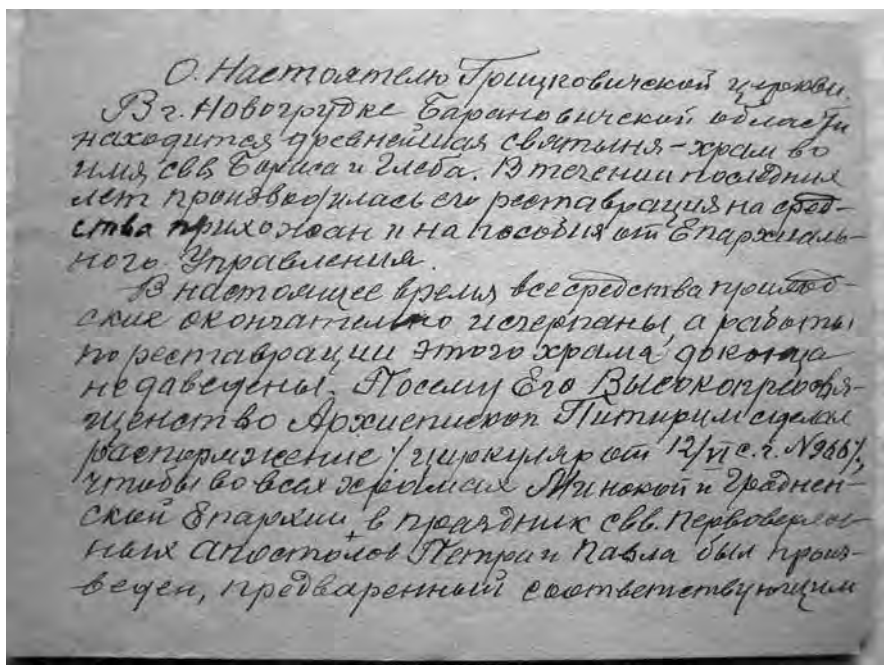 О. Настоятелю Грицковичской церкви.
В г. Новогрудке Барановичской области
находится древнейшая святыня - храм во
имя свв. Бориса и Глеба. В течении последних
лет производилась его реставрация на сред-
ства прихожан и на пособия от Епархиаль-
ного Управления.
В настоящее время все средства приход-
ские окончательно исчерпаны, а работы
по реставрации этого храма до конца
не даведены. Посему Его Высокопреосвя-
щенство Архиепископ Питирим сделал
распоряжение /циркуляр от 12/VI с.г. №966/,
чтобы во всех храмах Минской и Гроднен-
ской Епархии в праздник свв. Первоверхов-
ных Апостолов Петра и Павла был произ-
веден, предваренный соответствующим